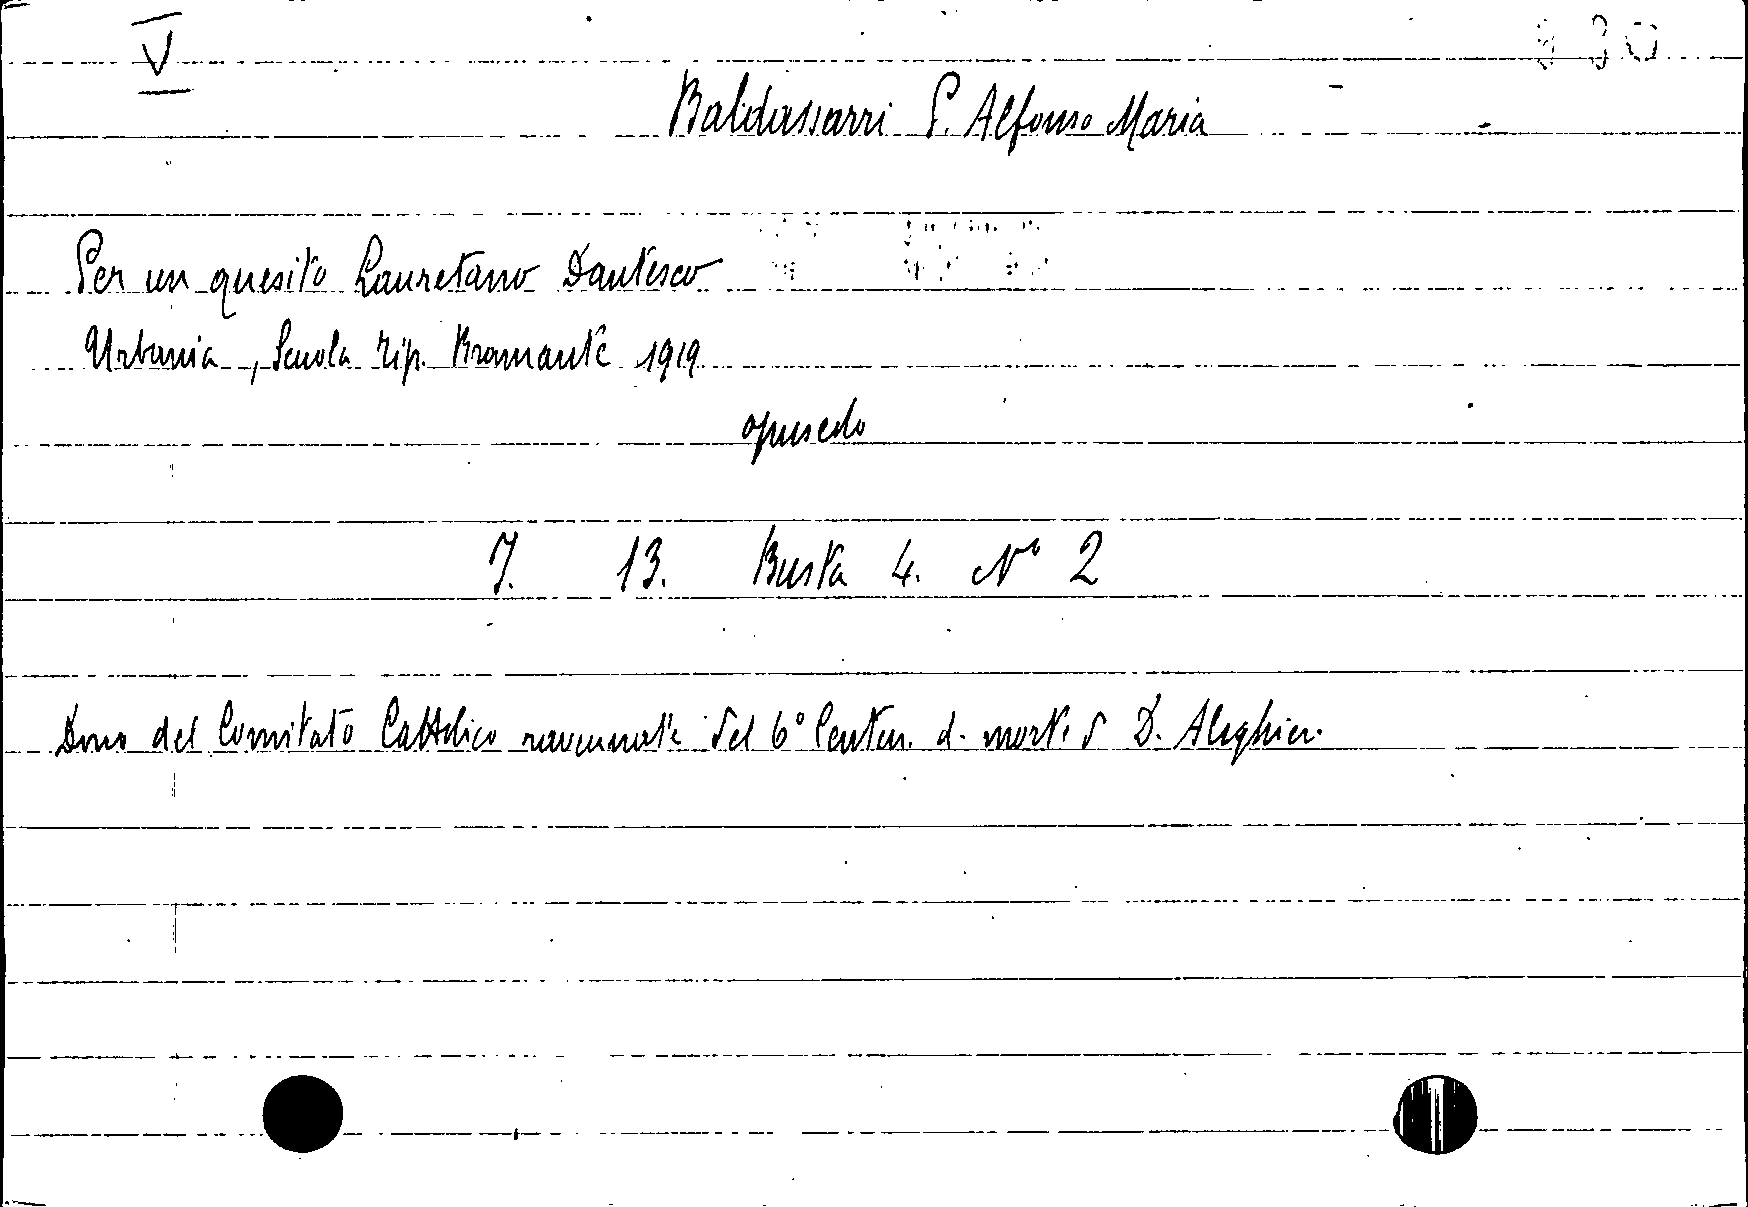 V
Baldassarri P. Alfonso Maria
Per un quesito Lauretano Dantesco
Urbania, Scuola tip. Bramante 1919
opuscolo
7. 13. Busta 4. N° 2
Dono del Comitato Cattolico ravennate del 6° Centen. d. morte d D. Alighieri